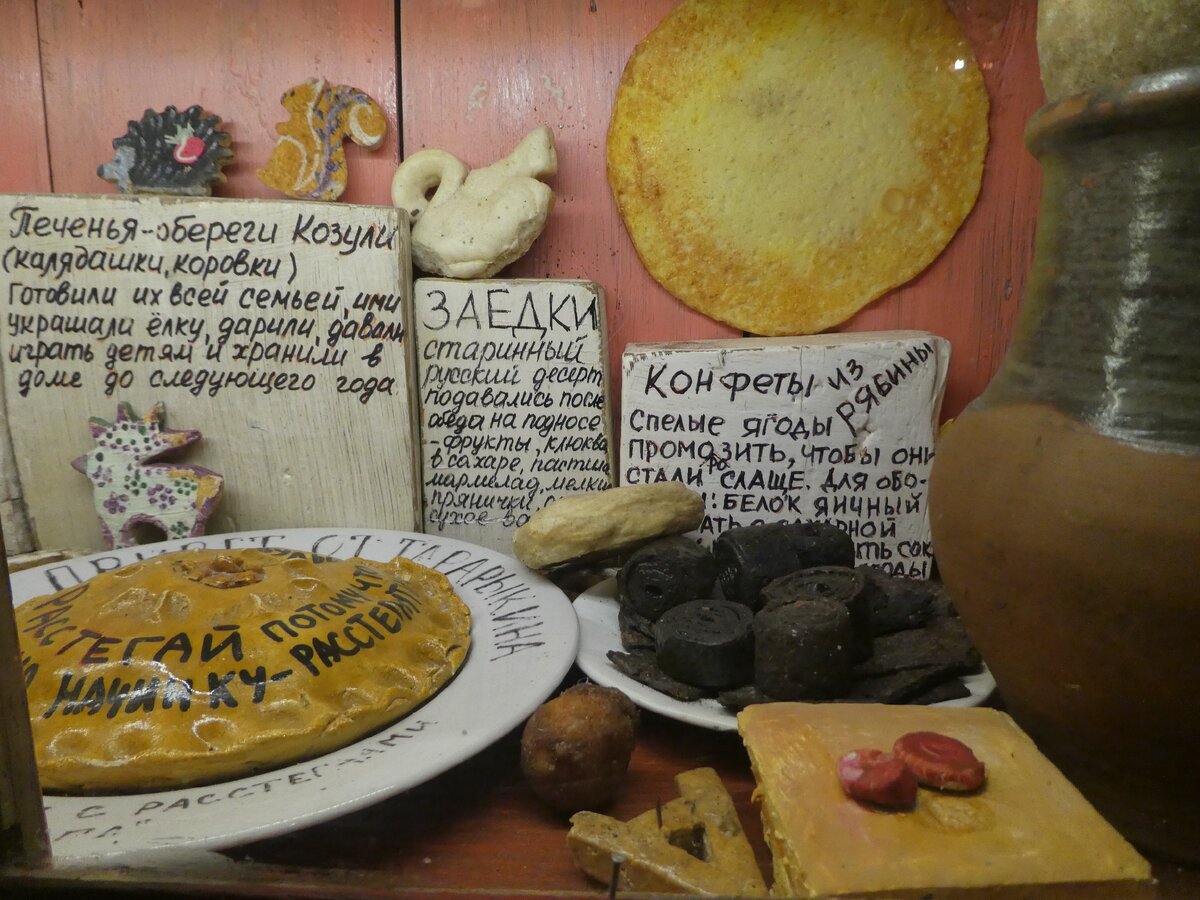 Печенья-обереги Козули
(калядашки, коровки)
Готовили их всей семьей, ими
украшали ёлку, дарили, давали
играть детям и хранили в
доме до следующего года.
ЗАЕДКИ
старинный
русский десерт
подавались после
обеда на подносе
- фрукты, клюква
в сахаре, пастила
мармелад, мелкие
прянички,
сухое ва
Конфеты из
рябины
Спелые ягоды
промозить, чтобы они
стали слаще. Для обо-
: белок яичный
ать с сахарной
ть сок
ягоды
ПРИВЕТ ОТ ТАРАРЫКИНА
РАССТЕГАЙ ПОТОМУЧТО
НАЧИНКУ-РАССТЕГНУТ
С РАССТЕГАЯМИ